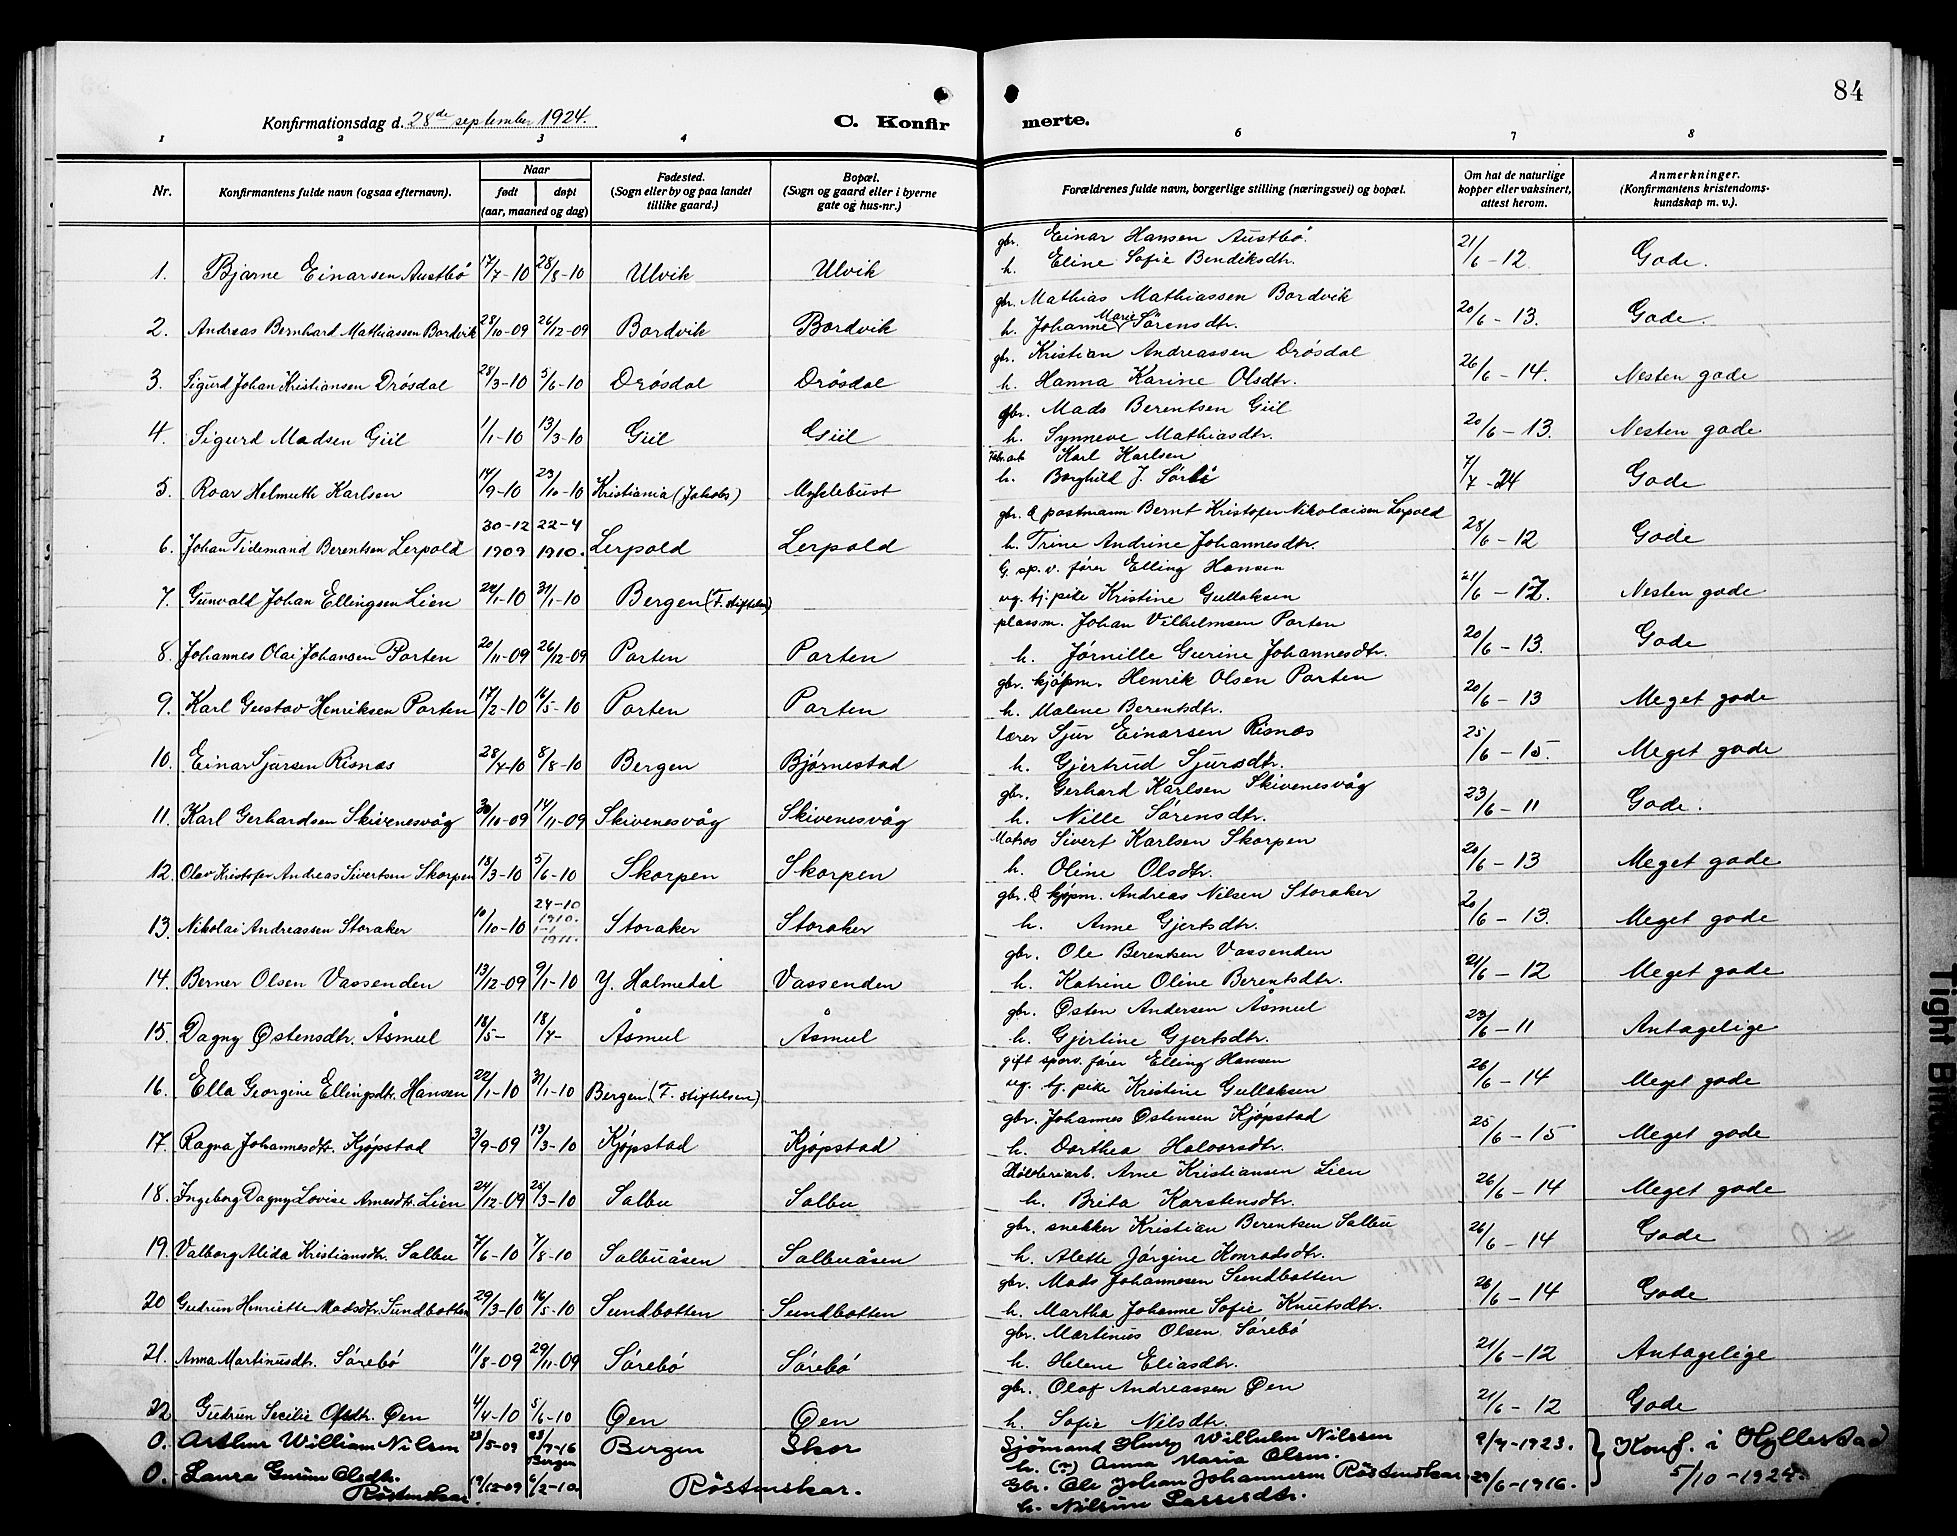 84
Konfirmationsdag d. 28de september 1924.
C. Konfir merte.
1 2 3 4 6 7 8
Nr. Konfirmantens fulde navn (ogsaa efternavn). Naar født døpt (aar, maaned og dag) Fødested. (Sogn eller by og paa landet tillike gaard.) Bopæl. (Sogn og gaard eller i byerne gate og hus-nr.) Forældrenes fulde navn, borgerlige stilling (næringsvei) og bopæl. Om hat de naturlige kopper eller vaksinert, attest herom. Anmerkninger. (Konfirmantens kristendoms-kundskap m. v.).
1. Bjarne Einarsen Austbö 17/7-10 28/8-10 Ulvik Ulvik gbr. Einar Hansen Austbö. 21/6-12 Gode.
h. Eline Sofie Bendiksdtr.
2. Andreas Bernhard Mathiassen Bordvik 28/10-09 26/12-09 Bordvik Bordvik gbr. Mathias Mathiassen Bordvik 20/6-13. Gode.
h. Johanne Marie Sörensdtr.
3. Sigurd Johan Kristiansen Drösdal 28/3-10 5/6-10 Drösdal Drösdal gbr. Kristian Andreassen Drösdal 26/6-14. Nesten gode
h. Hanna Karine Olsdtr.
4. Sigurd Madsen Giil 1/1-10 13/3-10 Giil Giil gbr. Mads Berentsen Giil 20/6-13. Nesten gode
h. Synneve Mathiasdtr.
5. Roar Helmuth Karlsen 14/9-10 23/10-10 Kristiania (Jakobs) Myklebust Fabr.arb Karl Karlsen 7/7-24 Gode
h. Borghild J. Sörbö
6. Johan Tidemand Berentsen Lerpold 30-12 1909 22-4 1910. Lerpold Lerpold gbr. & postmann Bernt Kristofer Nikolaisen Lerpold 28/6-12 Gode
h. Trine Andrine Johannesdtr.
7. Gunvald Johan Ellingsen Lien 22/1-10 31/1-10 Bergen (F. stiftelsen) G. sp. v. fører Elling Hansen 21/6-12. Nesten gode
ug. tj. pike Kristine Gullaksen
8. Johannes Olai Johansen Porten 20/11-09 26/12-09 Porten Porten plassm. Johan Vilhelmsen Porten 20/6-13. Gode
h. Jørnille Gurine Johannesdtr.
9. Karl Gustav Henriksen Porten 17/2-10 16/5-10 Porten Porten gbr. kjøpm. Henrik Olsen Porten 20/6-13 Meget gode
h. Malene Berentsdtr.
10. Einar Sjursen Risnes 28/4-10 8/8-10 Bergen Bjørnestad lærer Sjur Einarsen Risnes 25/6-15. Meget gode
h. Gjertrud Sjursdtr.
11. Karl Gerhardsen Skivenesvåg 30/10-09 14/11-09 Skivenesvåg Skivenesvåg gbr. Gerhard Karlsen Skivenesvåg 23/6-11 Gode.
h. Nille Sörensdtr.
12. Olav Kristofer Andreas Sivertsen Skorpen 18/3-10 5/6-10 Skorpen Skorpen Matros Sivert Karlsen Skorpen 20/6-13 Meget gode
h. Oline Olsdtr.
13. Nikolai Andreassen Storaker 10/10-10 24-10 1910. 1-1 1911. Storaker Storaker gbr. & kjøpm. Andreas Nilsen Storaker 20/6-13. Meget gode
h. Anne Gjertsdtr.
14. Berner Olsen Vassenden 13/12-09 9/1-10 Y. Holmedal Vassenden gbr. Ole Berentsen Vassenden 21/6-12 Meget gode
h. Katrine Oline Berentsdtr.
15. Dagny Østensdtr. Åsmul 18/5- 18/7- Åsmul Åsmul gbr. Østen Andersen Åsmul 23/6-11 Antagelige
h. Gjertine Gjertsdtr.
16. Ella Georgine Ellingsdtr. Hansen 22/1-10 31/1-10 Bergen (F. stiftelsen) gift sporv. fører Elling Hansen 26/6-14 Meget gode
ug. tj. pike Kristine Gullaksen
17. Ragna Johannesdtr. Kjøpstad 3/9-09 13/3-10 Kjøpstad Kjøpstad gbr. Johannes Østensen Kjøpstad 25/6-15 Meget gode
h. Dorthea Halvorsdtr.
18. Ingeborg Dagny Lovise Arnesdtr. Lien 24/12-09 25/3-10 Salbu Salbu Arne Kristiansen Lien 26/6-14 Meget gode
h. Brita Karstensdtr.
19. Valborg Alida Kristiansdtr. Salbu 7/6-10 7/8-10 Salbuåsen Salbuåsen gbr. snekker Kristian Berentsen Salbu 26/6-14 Gode
h. Alette Jörgine Konradsdtr.
20 Gudrun Henriette Madsdtr. Sundbotten 29/3-10 16/5-10 Sundbotten Sundbotten gbr. Mads Johannesen Sundbotten 26/6-14 Gode
h. Martha Johanne Sofie Knutsdtr.
21. Anna Martinusdtr. Sörebö 11/8-09 29/11-09 Sörebö Sörebö gbr. Martinus Olsen Sörebö 21/6-12 Antagelige
h. Helene Eliasdtr.
22 Gudrun Secilie Olsdtr. Øen 4/4-10 5/6-10 Øen Øen gbr. Olaf Andreassen Øen 21/6-12 Gode
h. Sofie Nilsdtr.
0. Arthur William Nilsen 23/5-09 23/7-16 Bergen Bergen Skor Sjömand Henry Wilhelm Nilssen 9/7-1923. Konf. i Hyllestad
h. (?) Anna Maria Olsen.
0. Laura Gurine Olsdtr. Röstenskar. 19/12-09 6/2-10 Röstenskar. Gbr. Ole Johan Johannesen Röstenskar 29/6-1916. 5/10-1924.
h. Nilsine Lassesdtr.
Tight Bind